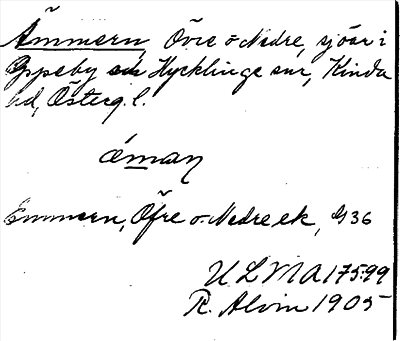 Ämmern, Övre o Nedre, sjöar i
Oppeby och Hycklinge snr, Kinda
hd, Österg. l.
ɷ́man
Emmern, Öfre o. Nedre ek, G 36
ULMA 175:99
R. Alvin 1905